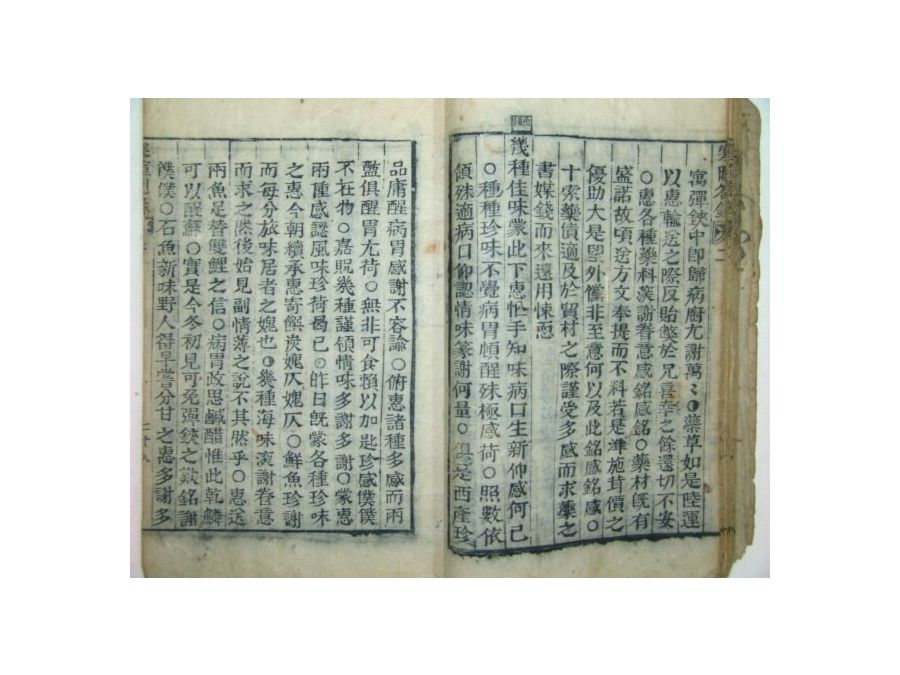 寓彈鋏中卽歸病廚尤謝萬〻○藥草如是陸運
以惠輸送之際反貽弊於兄喜幸之餘還切不安
○惠各種藥料深謝眷意感銘感銘○藥材旣有
盛諾故頃送方文奉提而不料若是準施茸價之
優助大是望外儻非至意何以及此銘感銘感○
十索藥債適及於貿材之際謹受多感而求藥之
書媒錢而來還用悚恧
幾種佳味蒙此下惠忙手知味病口生新仰感何已
○種種珍味不覺病胃頓醒殊極感荷○照數依
領殊適病口仰認情味篆謝何量○俱是西產珍
品庸醒病胃感謝不容諭○俯惠諸種多感而兩
盬俱醒胃尤荷○無非可食賴以加匙珍感僕僕
不在物○嘉貺幾種謹領情味多謝多謝○蒙惠
兩種感認風味珍荷曷已○昨日旣蒙各種珍味
之惠今朝續承惠寄饌炭媿仄媿仄○鮮魚珍謝
而每分旅味居者之媿也○幾種海味深謝眷意
而求之然後始見副情薄之說不其然乎○惠送
兩魚足替雙鯉之信○病胃政思鹹醋惟此乾鱗
可以醒蘇○實是今冬初見可免彈鋏之歎銘謝
僕僕○石魚新味野人得早嘗分甘之惠多謝多